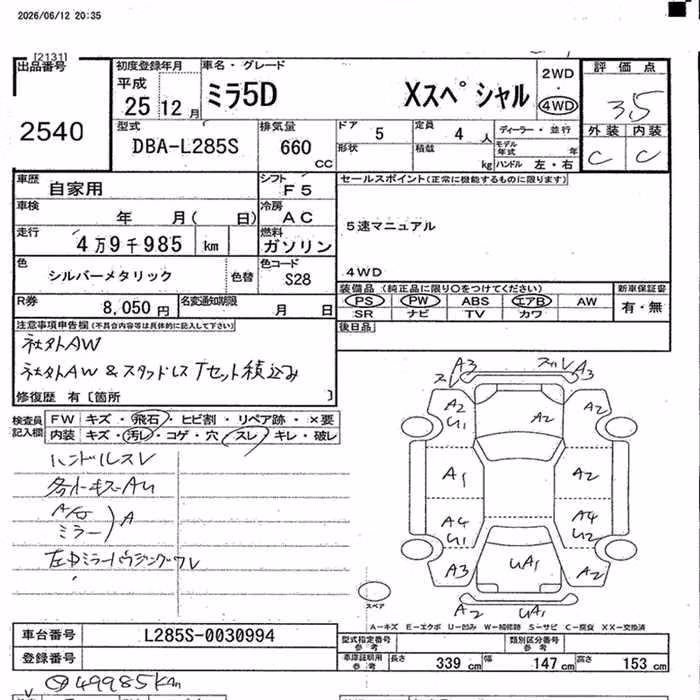 2026/06/12 20:35
[2131]
出品番号
2540
初度登録年月
平成
25 12 月
車名・グレード
ミラ5D Xスペシャル
2WD
・
4WD
評価点
3.5
外装 内装
C C
型式
DBA-L285S
排気量
660
CC
ドア
5
形状
定員
4 人
積載
kg
ディーラー・並行
モデル年式 年
ハンドル 左・右
車歴
自家用
シフト
F5
車検
年 月( 日)
冷房
AC
走行
4万9千985 km
燃料
ガソリン
色
シルバーメタリック
色替
色コード
S28
R券
8,050 円
名変通知期限
月 日
セールスポイント(正常に機能するものに限ります)
5速マニュアル
4WD
装備品 (純正品に限り○をつけてください)
PS PW ABS エアB AW
SR ナビ TV カワ
新車保証書
有・無
後日品
注意事項申告欄 (不具合内容等は具体的に記入して下さい)
社外AW
社外AW & スタッドレスTセット積込み
修復歴 有〔箇所 〕
検査員記入欄
FW キズ・飛石・ヒビ割・リペア跡・×要
内装 キズ・汚レ・コゲ・穴・スレ・キレ・破レ
ハンドルスレ
ミラー
A
A3 スレ
スレ A3
A2 U1 A2 A2
A1 A2
A4 U1 A4 U2
A3 UA1 A2
A2 UA1
スペア
A－キズ E－エクボ U－凹み W－補修跡 S－サビ C－腐食 XX－交換済
車台番号 L285S-0030994
登録番号
型式指定番号 参考
類別区分番号 参考
車庫証明用 参考 長さ 339 cm 幅 147 cm 高さ 153 cm
49985Km